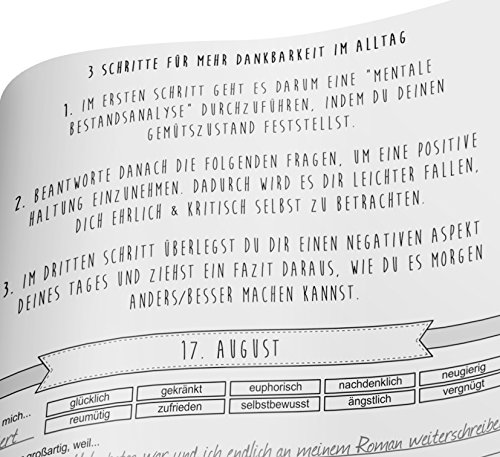 3 SCHRITTE FÜR MEHR DANKBARKEIT IM ALLTAG
1. IM ERSTEN SCHRITT GEHT ES DARUM EINE "MENTALE
BESTANDSANALYSE" DURCHZUFÜHREN, INDEM DU DEINEN
GEMÜTSZUSTAND FESTSTELLST.
2. BEANTWORTE DANACH DIE FOLGENDEN FRAGEN, UM EINE POSITIVE
HALTUNG EINZUNEHMEN. DADURCH WIRD ES DIR LEICHTER FALLEN,
DICH EHRLICH & KRITISCH SELBST ZU BETRACHTEN.
3. IM DRITTEN SCHRITT ÜBERLEGST DU DIR EINEN NEGATIVEN ASPEKT
DEINES TAGES UND ZIEHST EIN FAZIT DARAUS, WIE DU ES MORGEN
ANDERS/BESSER MACHEN KANNST.
17. AUGUST
glücklich gekränkt euphorisch nachdenklich neugierig
mich... reumütig zufrieden selbstbewusst ängstlich vergnügt
großartig, weil...
war und ich endlich an meinem Roman weiterschreibe